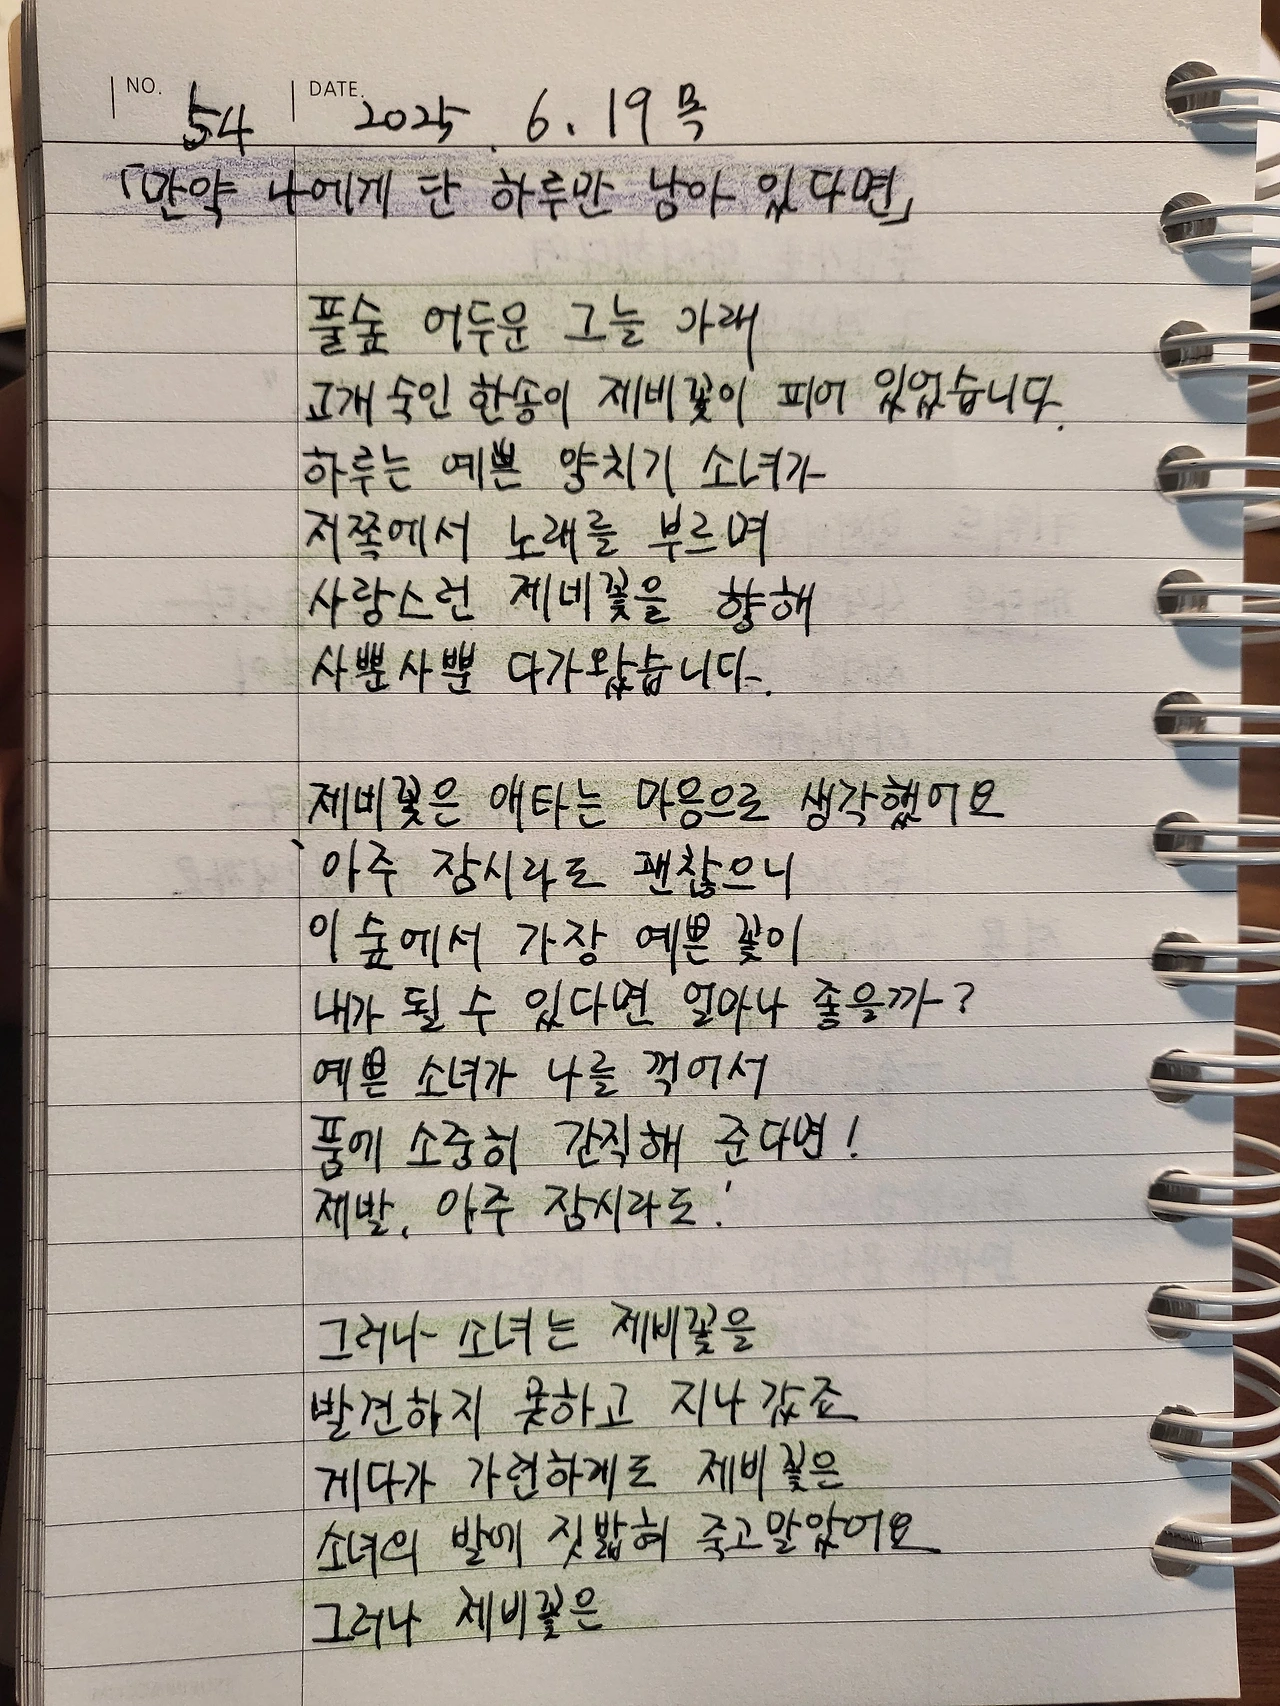 NO. 54 DATE. 2025. 6. 19 목
「만약 나에게 단 하루만 남아 있다면」
풀숲 어두운 그늘 아래
고개 숙인 한송이 제비꽃이 피어 있었습니다.
하루는 예쁜 양치기 소녀가
저쪽에서 노래를 부르며
사랑스런 제비꽃을 향해
사뿐사뿐 다가왔습니다.
제비꽃은 애타는 마음으로 생각했어요
`아주 잠시라도 괜찮으니
이 숲에서 가장 예쁜 꽃이
내가 될 수 있다면 얼마나 좋을까?
예쁜 소녀가 나를 꺽어서
품에 소중히 간직해 준다면!
제발, 아주 잠시라도!
그러나 소녀는 제비꽃을
발견하지 못하고 지나갔죠
게다가 가련하게도 제비꽃은
소녀의 발에 짓밟혀 죽고말았어요
그러나 제비꽃은